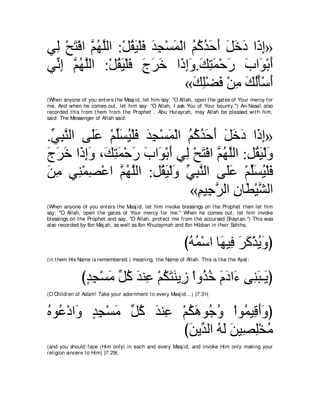 «إِذَا دَخَلَ أَحَدُكُمُ الْمَسْجِدَ فَلْيَقُلْ: اللَّهُمَّ افْتَحْ لِي
أَبْوَابَ رَحْمَتِكَ.وَإِذَا خَرَجَ فَلْيَقُلْ: اللَّهُمَّ إِنِّي
أَسْأَلُكَ مِنْ فَضْلِكَ»
(When anyone of you enters the Masjid, let him say: "O Allah, open the gates of Your mercy for
me. And when he comes out, let him say: "O Allah, I ask You of Your bounty.") An-Nasa'i also
recorded this from them from the Prophet . Abu Hurayrah, may Allah be pleased with him,
said: The Messenger of Allah said:
«إِذَا دَخَلَ أَحَدُكُمُ الْمَسْجِدَ فَلْيُسَلِّمْ عَلَى النَّبِيِّ.
وَلْيَقُلْ: اللَّهُمَّ افْتَحْ لِي أَبْوَابَ رَحْمَتِكَ، وَإِذَا خَرَجَ
فَلْيُسَلِّمْ عَلَى النَّبِيِّ وَلْيَقُلْ: اللَّهُمَّ اعْصِمْنِي مِنَ
الشَّيْطَانِ الرَّجِيمِ»
(When anyone of you enters the Masjid, let him invoke blessings on the Prophet then let him
say: "O Allah, open the gates of Your mercy for me." When he comes out, let him invoke
blessings on the Prophet and say, "O Allah, protect me from the accursed Shaytan.") This was
also recorded by Ibn Majah, as well as Ibn Khuzaymah and Ibn Hibban in their Sahihs.
(وَيُذْكَرَ فِيهَا اسْمُهُ)
(in them His Name is remembered.) meaning, the Name of Allah. This is like the Ayat:
(يَـبَنِى ءَادَمَ خُذُوا زِينَتَكُمْ عِندَ كُلِّ مَسْجِدٍ)
(O Children of Adam! Take your adornment to every Masjid...) (7:31)
(وَأَقِيمُوا وُجُوهَكُمْ عِندَ كُلِّ مَسْجِدٍ وَادْعُوهُ
مُخْلِصِينَ لَهُ الدِّينَ)
(and you should face (Him only) in each and every Masjid, and invoke Him only making your
religion sincere to Him) (7:29).